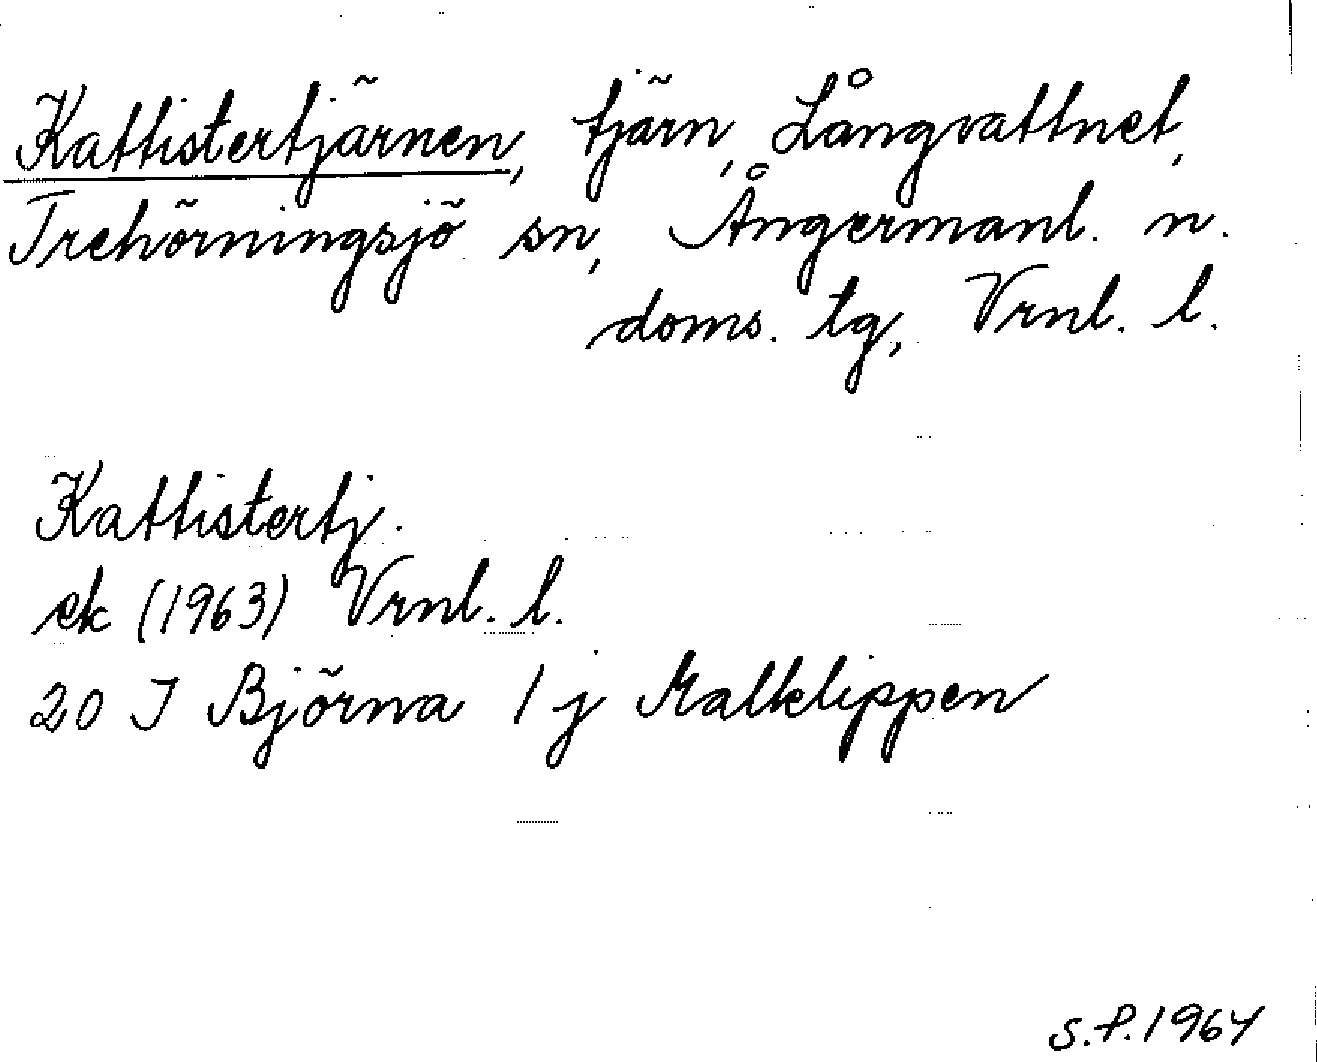 Kattistertjärnen, tjärn, Långvattnet,
Trehörningsjö sn, Ångermanl. n.
doms. tg, Vrnl. l.
Kattistertj.
ek (1963) Vrnl. l.
20 J Björna 1 j Malklippen
S.P. 1964